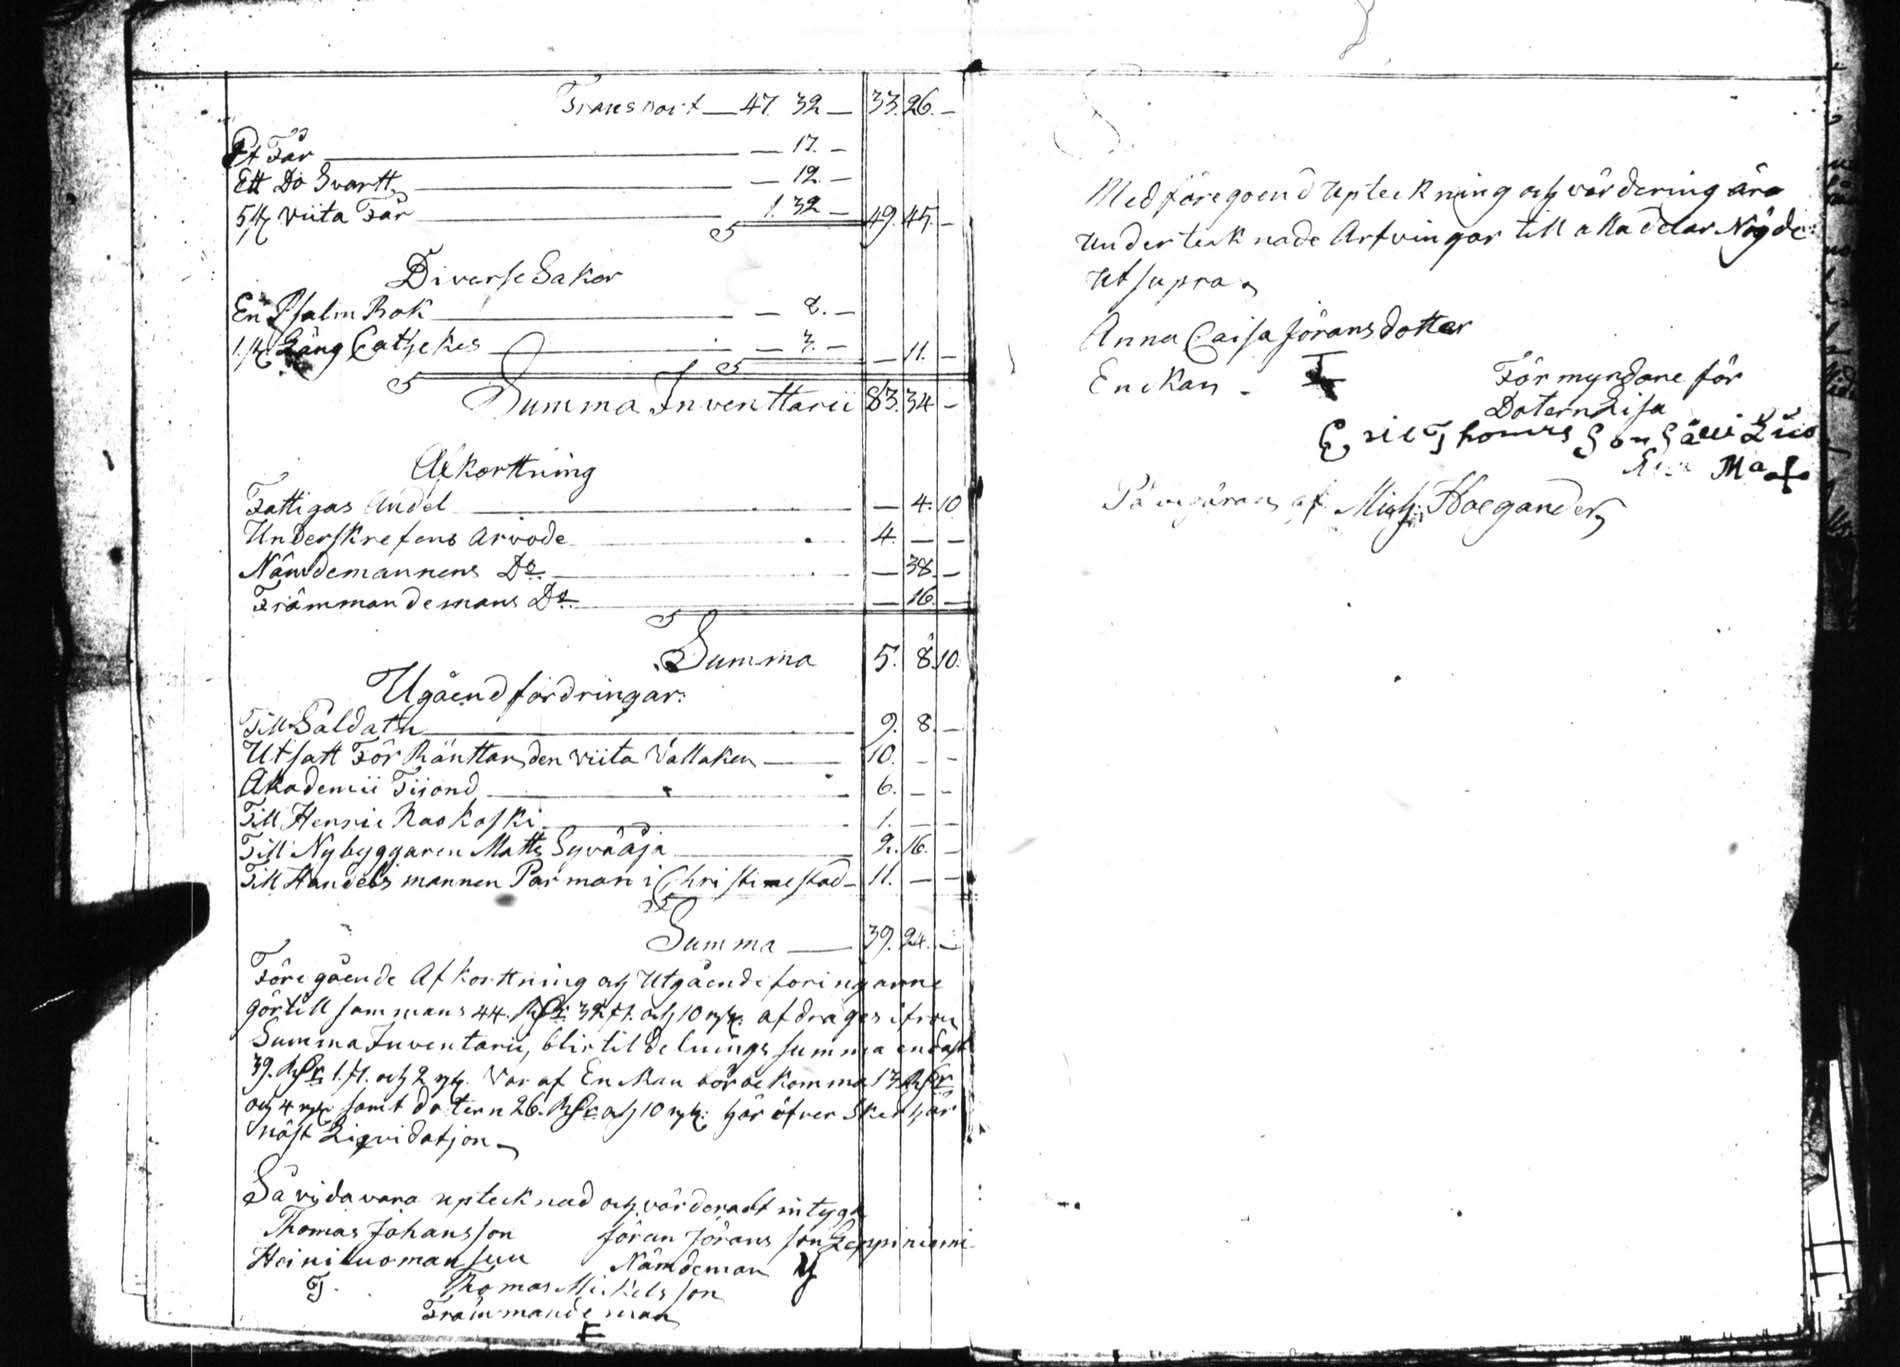 Transport — 47 32 — 33. 26. —
Et Får — 17. —
Ett Do Svartt — 12. —
5 st viita Får — 1. 32 — 49. 45. —
Diverse Saker
En Psalm Bok — 8. —
1 st Lång Cathekes — 3. — — 11. —
Summa Inventtarii 83. 34 —
Afkorttning
Fattigas Andel — 4. 10
Underskrefens Arvode 4. — —
Nämdemannens Do. — 38 —
Främmandemans Do. — 16. —
Summa 5. 8. 10.
Ugåend fordringar:
Till Saldatn 9. 8. —
Utsatt För Ränttan, den viita Vallaken 10. — —
Akademii Tijond 6. — —
Till Henric Kaskoski 1. — —
Till Nybyggaren Matts Syväåja 2. 16. —
Till Handelsmannen Parman i Christinestad 11. — —
Summa — 39. 24. —
Föregående Afkorttning och Utgående foringarne
gör till sammans 44. Rdr 32 st. och 10 rst. afdrages ifrån
Summa Inventarii, blir til delnings summa endast
39. Rdr 1. st. och 2 rst. Var af Enckan bör bekomma 13 Rdr
och 4 rst. samt dotern 26. Rdr och 10 rst. här öfver sker här
näst Liqvidatjon
Så vijda vara uptecknad och värderadt intyga
Thomas Johansson Jöran Jöransson Leppiniemi
Heiniluoman suu Nämdeman
T. Thomas Mickelsson
Främmande man
Med föregoend upteckning och värdering äro
undertecknade Arfvingar till alla delar Nögde
Ut supra
Anna Caisa Jöransdotter
Enckan Förmyndare för
Dotern Lisa
Eric Thomasson
På begäran af Mich: Hoegander